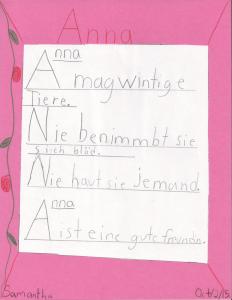 Anna
Anna
A mag wintige
Tiere.
Nie benimmbt sie
sich blöd.
Nie haut sie jemand.
Anna
A ist eine gute freundn.
Samantha
Oct/2/15